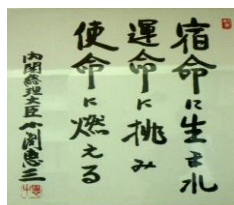 宿命に生まれ
運命に挑み
使命に燃える
内閣総理大臣 小渕恵三